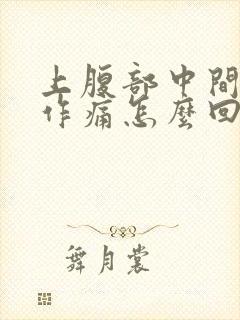 上腹部中間
作痛怎麼回
舞月裳